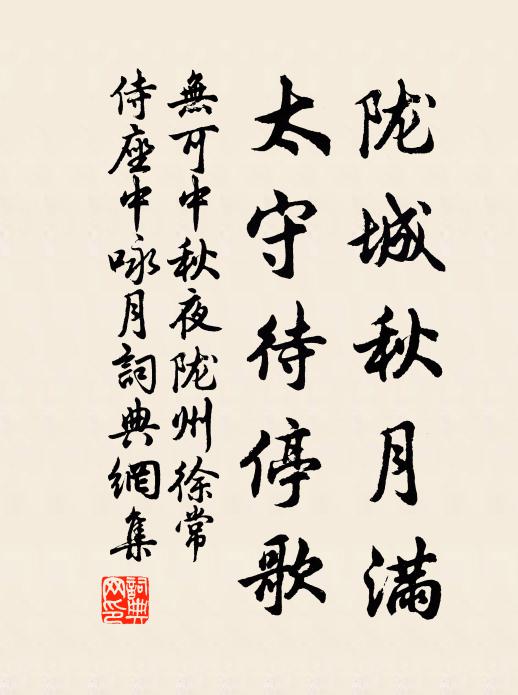 陇城秋月满
太守待停歌
無可中秋夜陇州徐常
侍座中咏月詞典網集
詞典網印